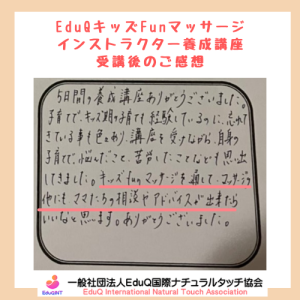 EduQキッズFunマッサージ
インストラクター養成講座
受講後のご感想
5日間の養成講座ありがとうございました。
子育て、キッズ期の子育ても経験しているのに、忘れて
きている事も色々あり、講座を受けながら、自身の
子育て、悩んだこと、苦労したことなども思い出
してきました。キッズfunマッサージを通して、マッサージの
他にもママたちの相談やアドバイスが出来たら
いいなと思います。ありがとうございました。
一般社団法人EduQ国際ナチュラルタッチ協会
EduQ International Natural Touch Association
EduQINT